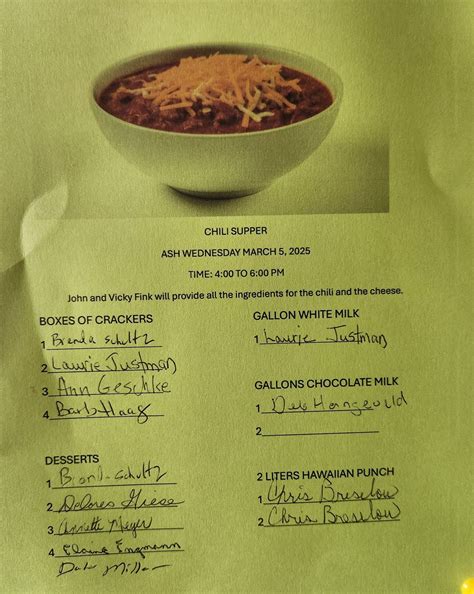 CHILI SUPPER
ASH WEDNESDAY MARCH 5, 2025
TIME: 4:00 TO 6:00 PM
John and Vicky Fink will provide all the ingredients for the chili and the cheese.
BOXES OF CRACKERS
1 Brenda Schultz
2 Laurie Justman
3 Ann Geschke
4 Barb Haag
DESSERTS
1 Schultz
2 Delores
3 Annette Meyer
4 Elaine Engmann
Miller
GALLON WHITE MILK
1 Laurie Justman
GALLONS CHOCOLATE MILK
1 Deb
2
2 LITERS HAWAIIAN PUNCH
1 Chris Breselow
2 Chris Breselow